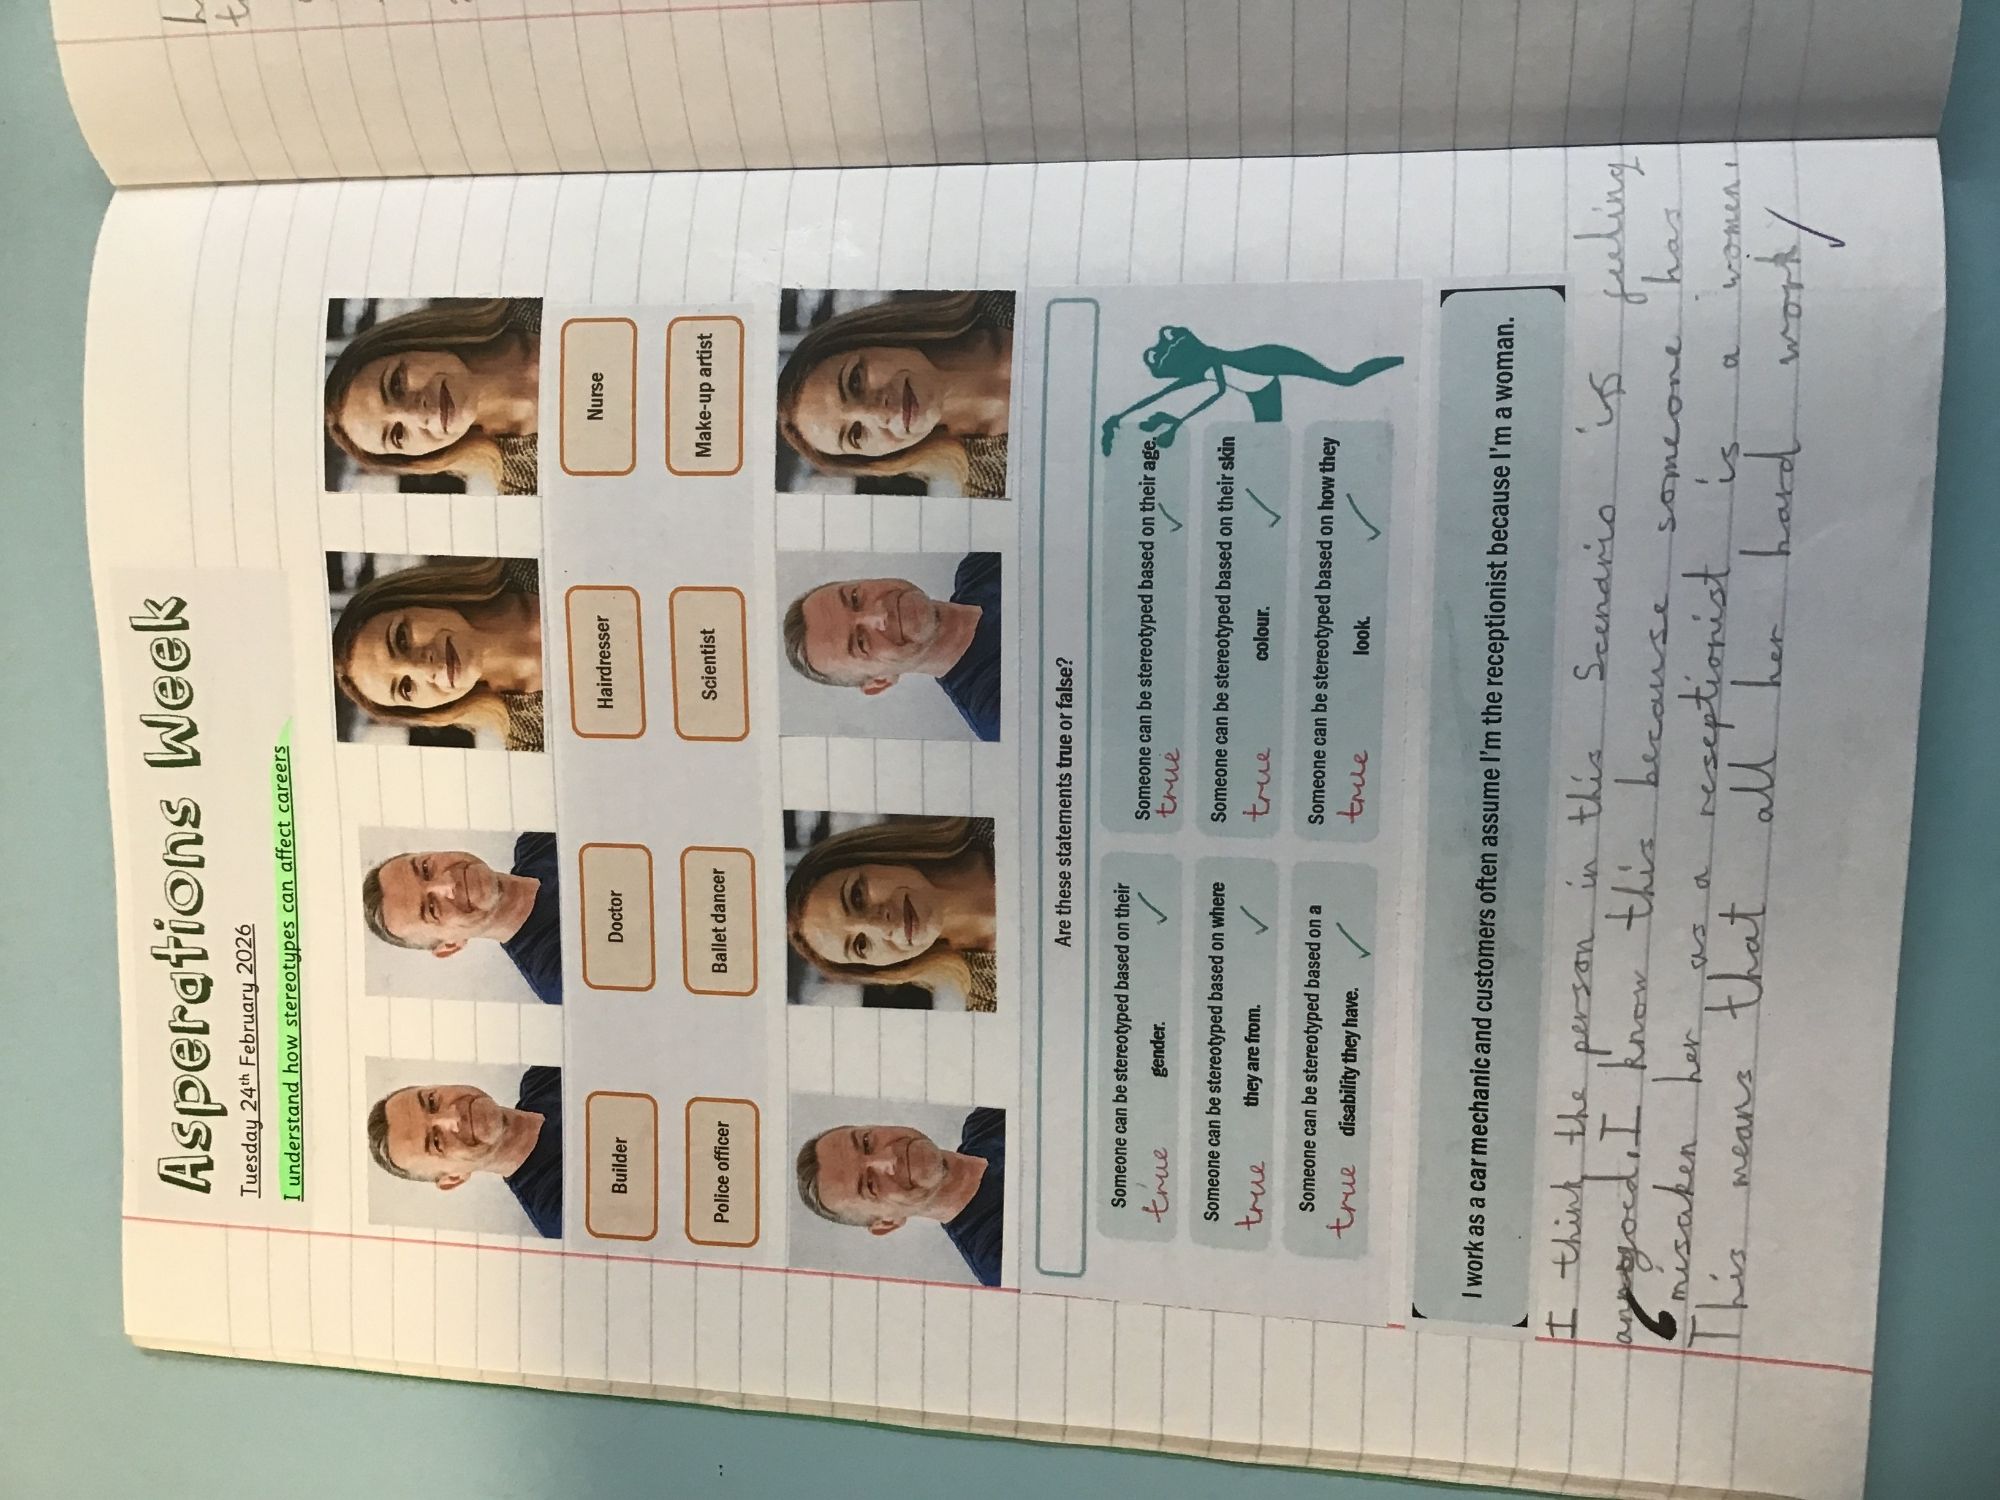 Asperations Week
Tuesday 24th February 2026
I understand how stereotypes can affect careers
Builder
Doctor
Hairdresser
Nurse
Police officer
Ballet dancer
Scientist
Make-up artist
Are these statements true or false?
Someone can be stereotyped based on their
true gender.
Someone can be stereotyped based on their age.
true
Someone can be stereotyped based on where
true they are from.
Someone can be stereotyped based on their skin
true colour.
Someone can be stereotyped based on a
true disability they have.
Someone can be stereotyped based on how they
true look.
I work as a car mechanic and customers often assume I'm the receptionist because I'm a woman.
I think the person in this Scenario is feeling
I know this because someone has
misaken her as a reseptionist is a women.
This means that all her hard work